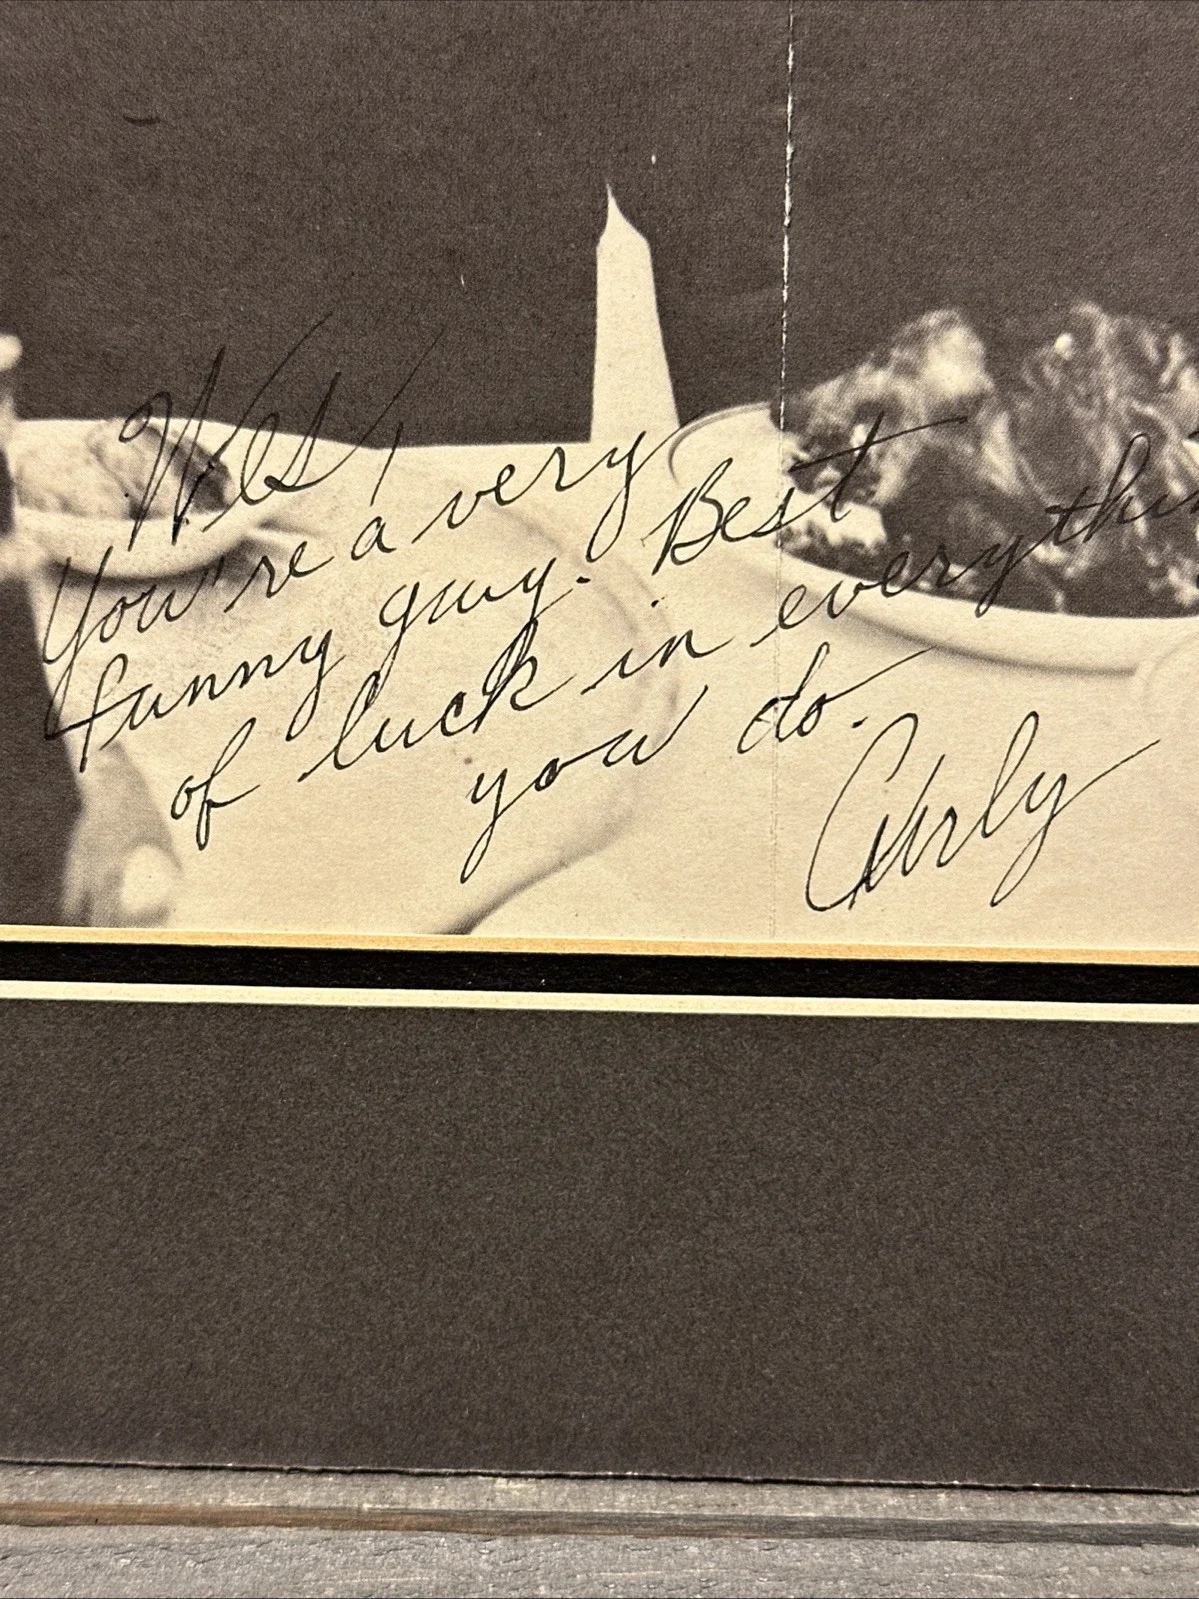 Wes,
You're a very
funny guy. Best
of luck in everythi
you do.
Curly